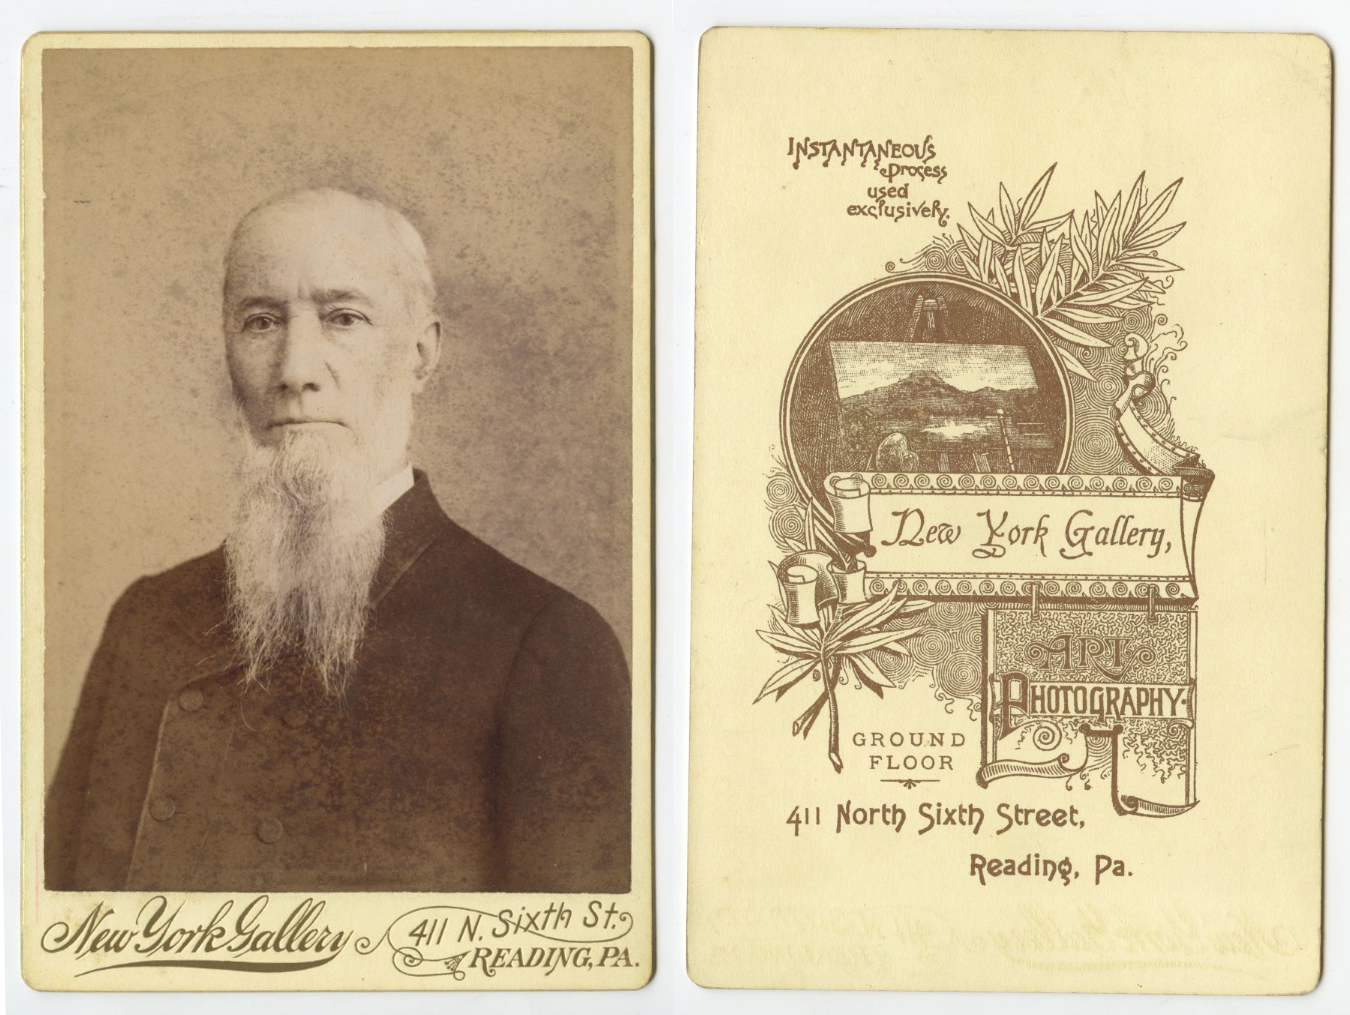 New York Gallery
411 N. Sixth St.
READING, PA.
INSTANTANEOUS
process
used
exclusively.
New York Gallery,
ART
PHOTOGRAPHY.
GROUND
FLOOR
411 North Sixth Street,
Reading, Pa.